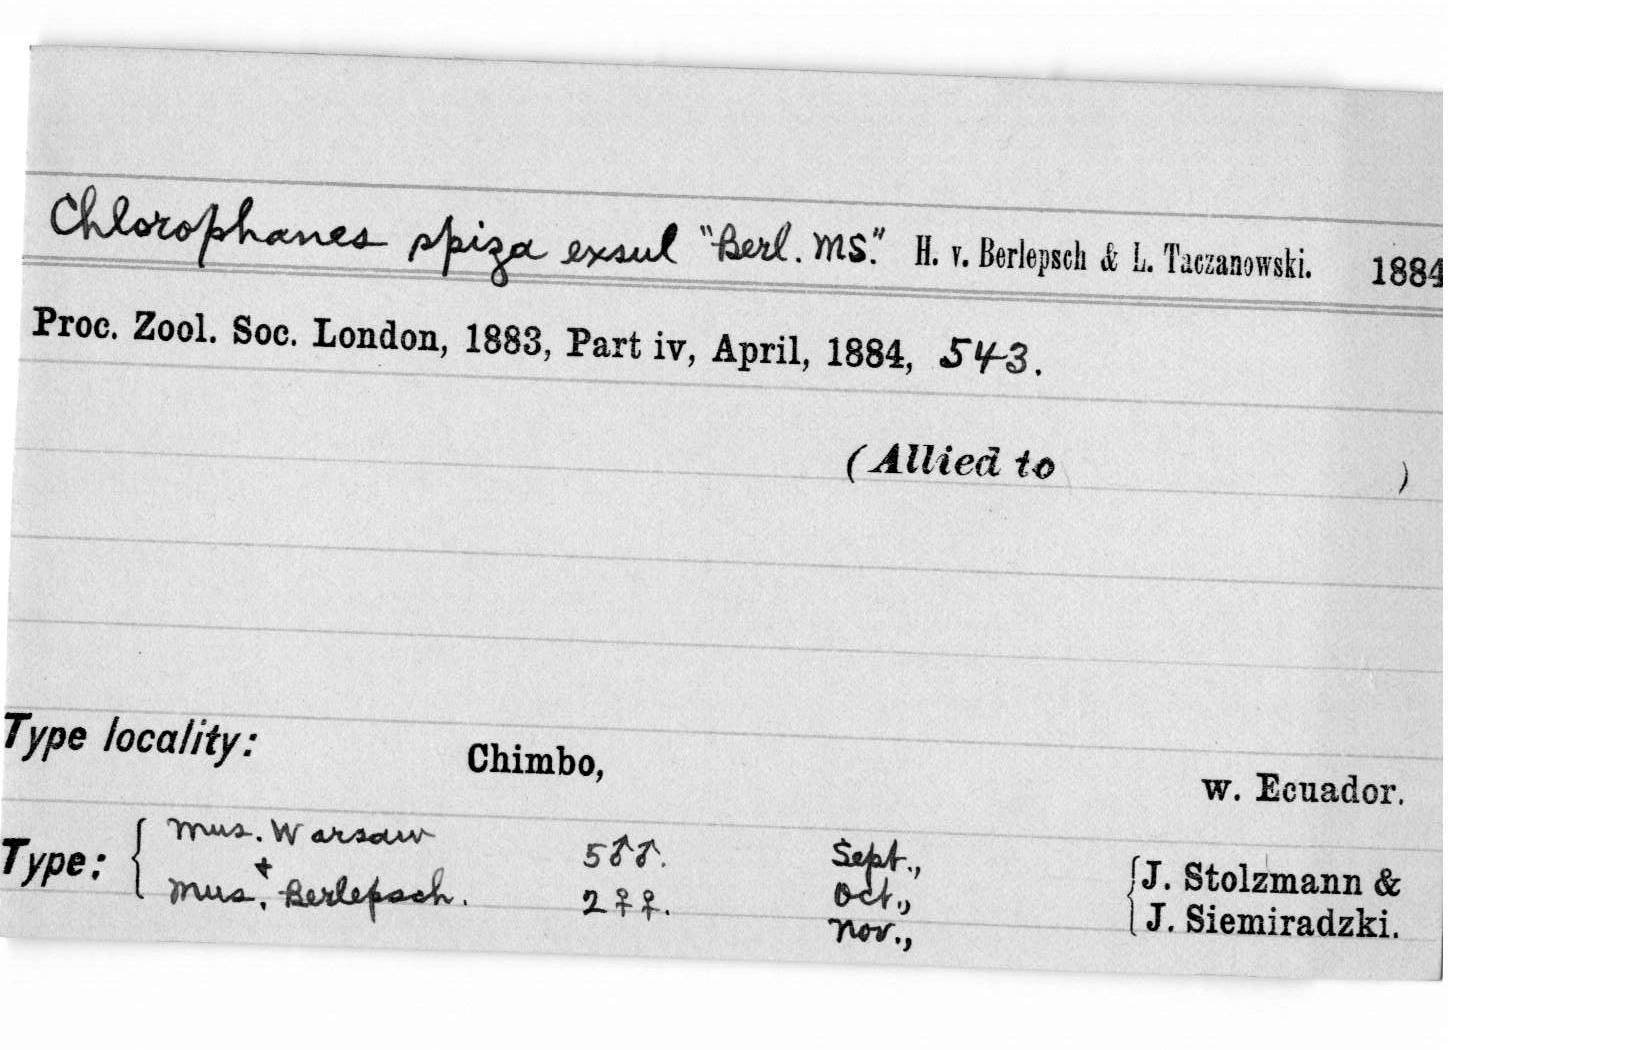 Chlorophanes spiza exsul "Berl. MS." H. v. Berlepsch & L. Taczanowski. 1884
Proc. Zool. Soc. London, 1883, Part iv, April, 1884, 543.
(Allied to )
Type locality: Chimbo, w. Ecuador.
Type: { Mus. Warsaw 5 ♂♂. Sept., { J. Stolzmann &
+
Mus. Berlepsch. 2 ♀♀. Oct., J. Siemiradzki.
Nov.,